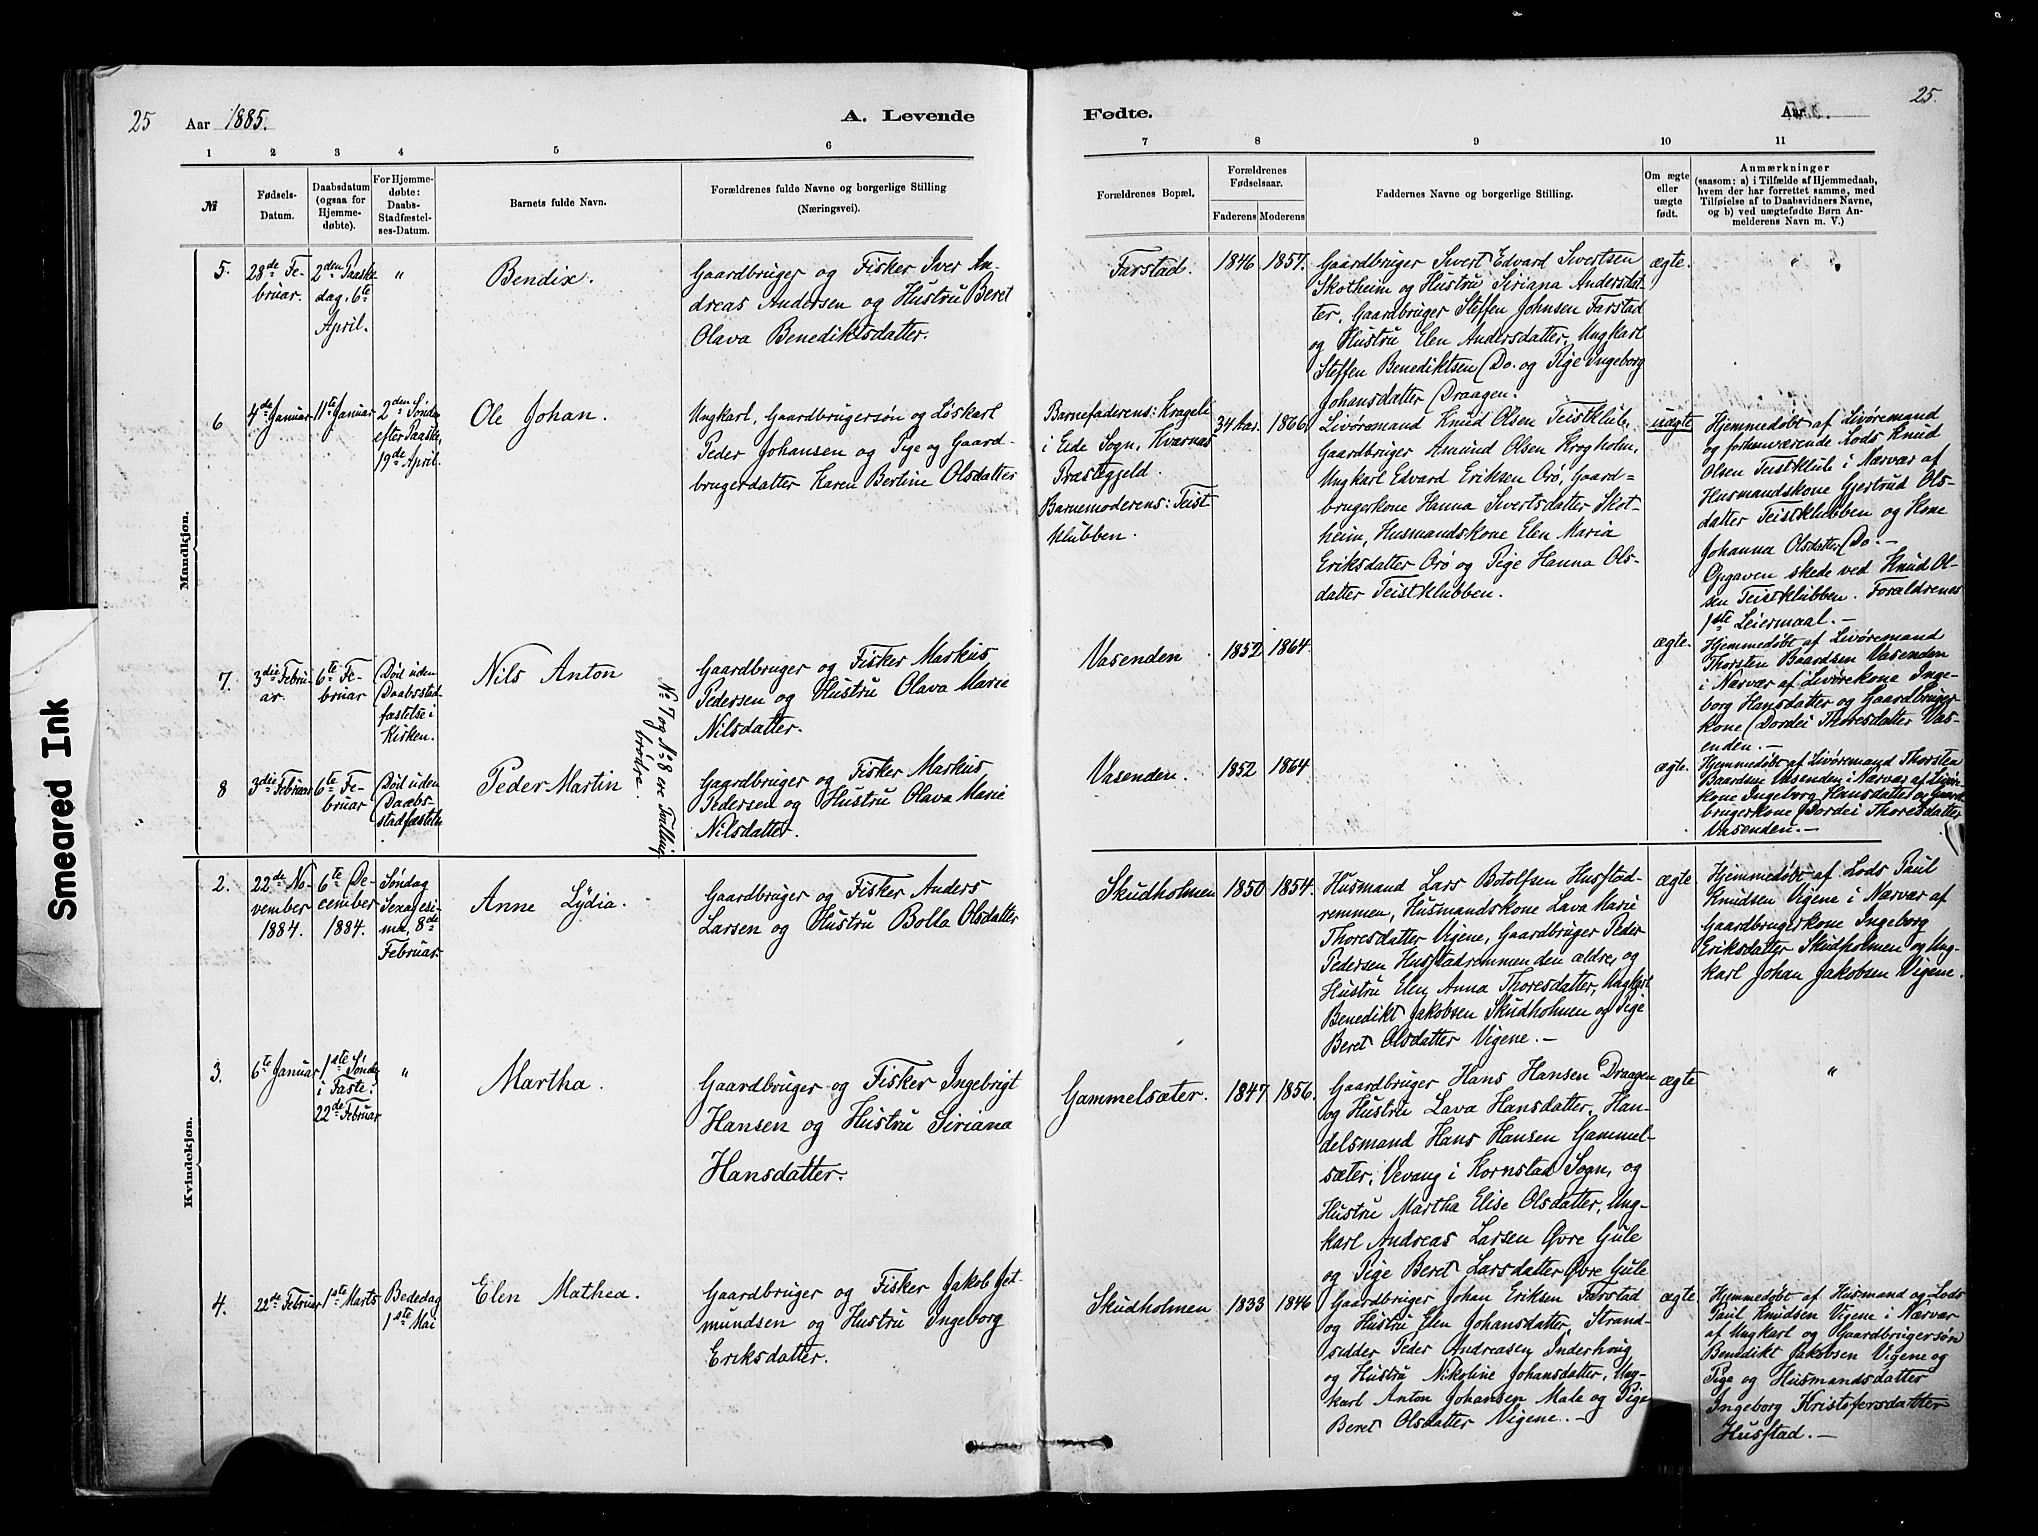 25
Aar 1885.
A. Levende
1
2
3
4
5
6
№
Fødsels-
Datum.
Daabsdatum
(ogsaa for
Hjemme-
døbte).
For Hjemme-
døbte:
Daabs-
Stadfæstel-
ses-Datum.
Barnets fulde Navn.
Forældrenes fulde Navne og borgerlige Stilling
(Næringsvei).
Mandkjøn.
5.
28de Fe-
bruar.
2den Paaske
dag, 6te
April.
"
Bendix.
Gaardbruger og Fisker Iver An-
dreas Andersen og Hustru Beret
Olava Benediktsdatter.
6
4de Januar
11te Januar
2den Søndag
efter Paaske,
19de April.
Ole Johan.
Ungkarl, Gaardbrugersøn og Løskarl
Peder Johansen og Pige og Gaard-
brugerdatter Karen Bertine Olsdatter
7.
3die Febru-
ar.
6te Fe-
bruar
Død uden
Daabsstad-
fæstelse i
Kirken.
Nils Anton
Gaardbruger og Fisker Markus
Pedersen og Hustru Olava Marie
Nilsdatter.
No 7 og No 8 ere Tvilling-
brødre.
8
3die Februar
6te Fe-
bruar
Død uden
Daabs-
stadfæstelse
Peder Martin
Gaardbruger og Fisker Markus
Pedersen og Hustru Olava Marie
Nilsdatter.
Kvindekjøn.
2.
22de No-
vember
1884.
6te De-
cember
1884.
Søndag
Sexagesi-
ma, 8de
Februar.
Anne Lydia.
Gaardbruger og Fisker Anders
Larsen og Hustru Bolla Olsdatter
3.
6te Januar
1ste Søndag
i Faste,
22de Februar
"
Martha.
Gaardbruger og Fisker Ingebrigt
Hansen og Hustru Siriana
Hansdatter.
4.
22de Februar
1ste Marts
Bededag
1ste Mai
Elen Mathea.
Gaardbruger og Fisker Jakob Jet-
mundsen og Hustru Ingeborg
Eriksdatter.
25.
Fødte.
Aar
7
8
9
10
11
Forældrenes Bopæl.
Forældrenes
Fødselsaar.
Faderens
Moderens
Faddernes Navne og borgerlige Stilling.
Om ægte
eller
uægte
født.
Anmærkninger
(saasom: a) i Tilfælde af Hjemmedaab,
hvem der har forrettet samme, med
Tilføielse af to Daabsvidners Navne,
og b) ved uægtefødte Børn An-
melderens Navn m. V.)
Farstad.
1846
1857.
Gaardbruger Sivert Edvard Sivertsen
Skotheim og Hustru Siriana Andersdat-
ter, Gaardbruger Steffen Johnsen Farstad
og Hustru Elen Andersdatter, Ungkarl
Steffen Benediktsen Do. og Pige Ingeborg
Johansdatter Draagen.
ægte.
"
Barnefaderens: Krageli
i Eide Sogn, Kvernæs
Præstegjeld.
Barnemoderens: Teist-
klubben.
34 Aar.
1866
Livøremand Knud Olsen Teistklub.,
Gaardbruger Amund Olsen Krogholm,
Ungkarl Edvard Eriksen Orø, Gaard-
brugerkone Hanna Sivertsdatter Skot-
heim, Husmandskone Elen Maria
Eriksdatter Orø og Pige Hanna Ols-
datter Teistklubben.
uægte
Hjemmedøbt af Livøremand
og forhenværende Lods Knud
Olsen Teistklub. i Nærvær af
Husmandskone Gjertrud Ols-
datter Teistklubben og Kone
Johanna Olsdatter Do. -
Opgaven skede ved Knud Ol-
sen Teistklubben. Forældrenes
1ste Leiermaal. -
Vasenden
1852
1864
ægte.
Hjemmedøbt af Livøremand
Thorsten Baardsen Vasenden
i Nærvær af Livørekone Inge-
borg Hansdatter og Gaardbruger-
kone Dordei Thoresdatter Vas-
enden. -
Vasenden.
1852
1864
ægte.
Hjemmedøbt af Livøremand Thorsten
Baardsen Vasenden i Nærvær af Livør-
kone Ingeborg Hansdatter og Gaard-
brugerkone Dordei Thoresdatter
Vasenden. -
Skudholmen
1850
1854.
Husmand Lars Botolfsen Hustad-
remmen, Husmandskone Lava Marie
Thoresdatter Vigene, Gaardbruger Peder
Pedersen Hustadremmen den ældre, og
Hustru Elen Anna Thoresdatter, Ungkarl
Benedikt Jakobsen Skudholmen og Pige
Beret Olsdatter Vigene. -
ægte
Hjemmedøbt af Lods Paul
Knudsen Vigene i Nærvær af
Gaardbrugerkone Ingeborg
Eriksdatter Skudholmen og Ung-
karl Johan Jakobsen Vigene.
Gammelsæter.
1847
1856.
Gaardbruger Hans Hansen Draagen
og Hustru Lava Hansdatter, Han-
delsmand Hans Hansen Gammel-
sæter, Vevang i Kornstad Sogn, og
Hustru Martha Elise Olsdatter, Ung-
karl Andreas Larsen Øvre Gule
og Pige Beret Larsdatter Øvre Gule
ægte
"
Skudholmen
1833
1846
Gaardbruger Johan Eriksen Farstad
og Hustru Elen Johansdatter, Strand-
sidder Peder Andreasen Inderhoug
og Hustru Nikoline Johansdatter, Ung-
karl Anton Johansen Male og Pige
Beret Olsdatter Vigene. -
ægte.
Hjemmedøbt af Husmand og Lods
Paul Knudsen Vigene i Nærvær
af Ungkarl og Gaardbrugersøn
Benedikt Jakobsen Vigene og
Pige og Husmandsdatter
Ingeborg Kristofersdatter
Hustad. -
Smeared Ink